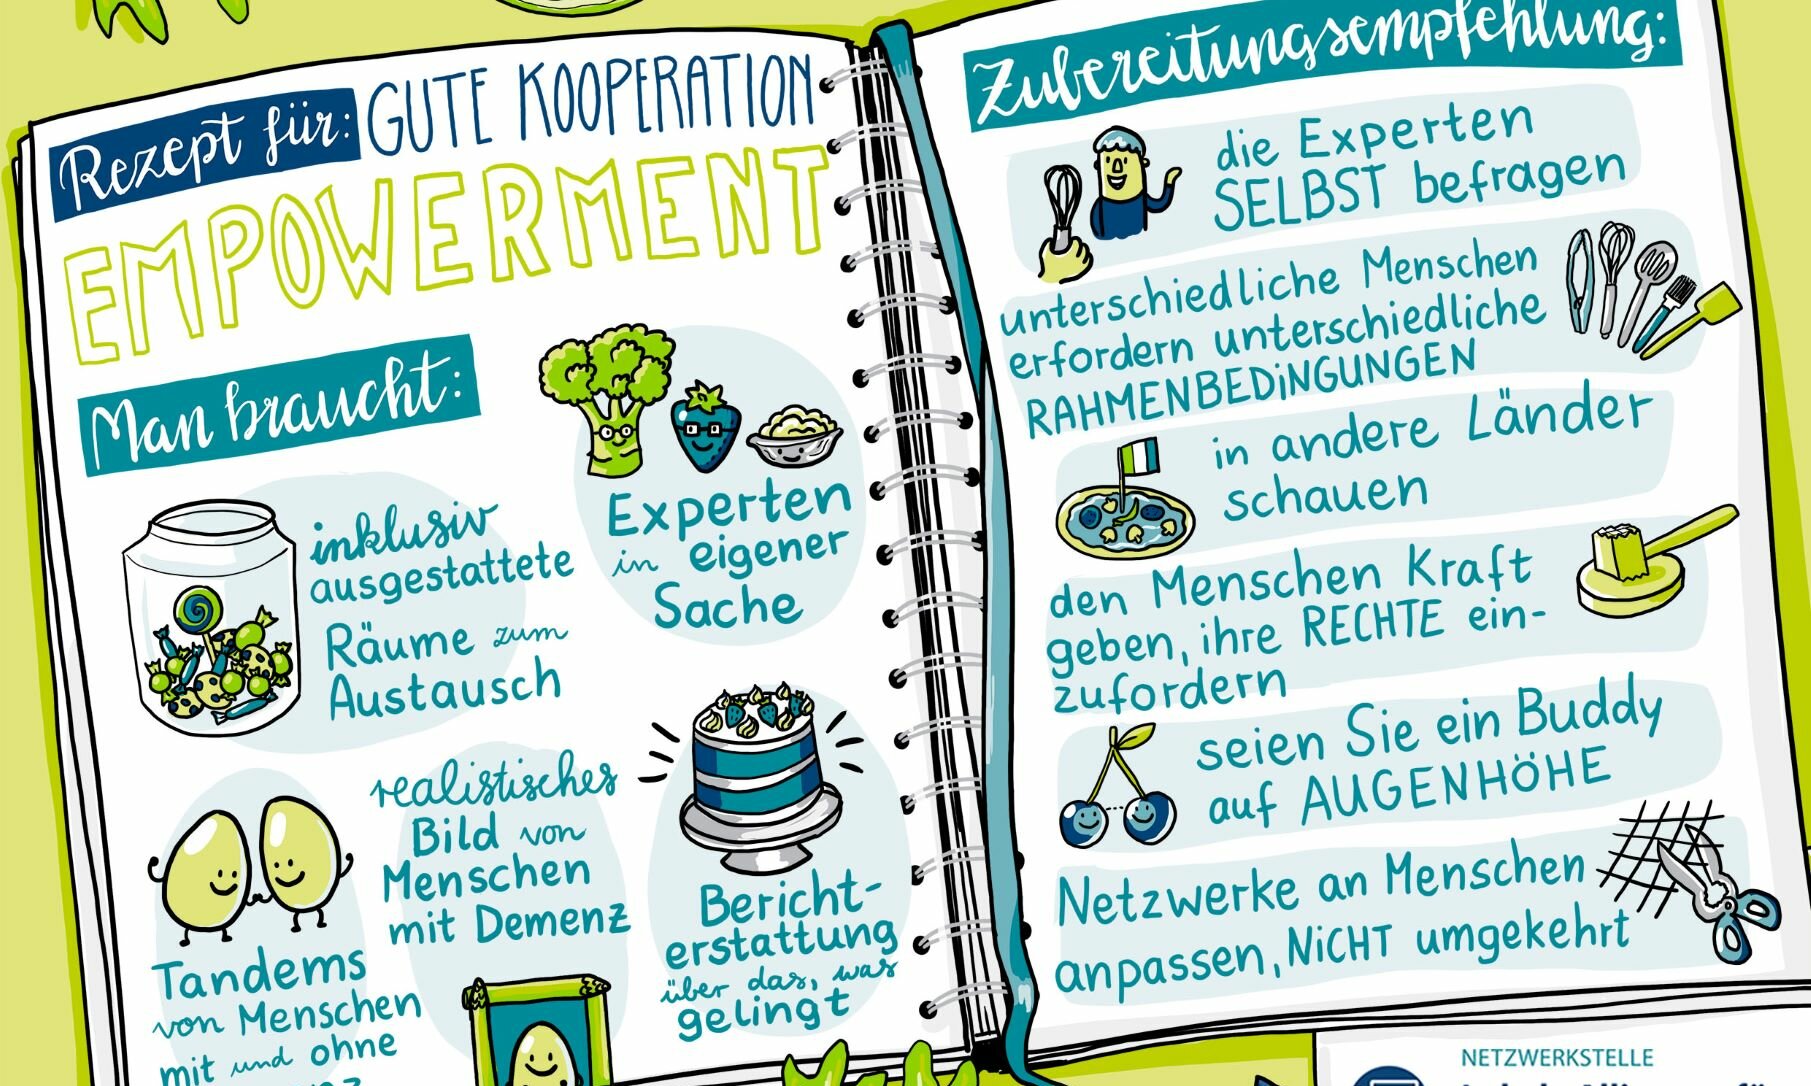 Rezept für: GUTE KOOPERATION
EMPOWERMENT
Man braucht:
inklusiv
ausgestattete
Räume zum
Austausch
Experten
in eigener
Sache
Tandems
von Menschen
mit und ohne
realistisches
Bild von
Menschen
mit Demenz
Bericht-
erstattung
über das, was
gelingt
Zubereitungsempfehlung:
die Experten
SELBST befragen
unterschiedliche Menschen
erfordern unterschiedliche
RAHMENBEDiNGUNGEN
in andere Länder
schauen
den Menschen Kraft
geben, ihre RECHTE ein-
zufordern
seien Sie ein Buddy
auf AUGENHÖHE
Netzwerke an Menschen
anpassen, NiCHT umgekehrt
NETZWERKSTELLE